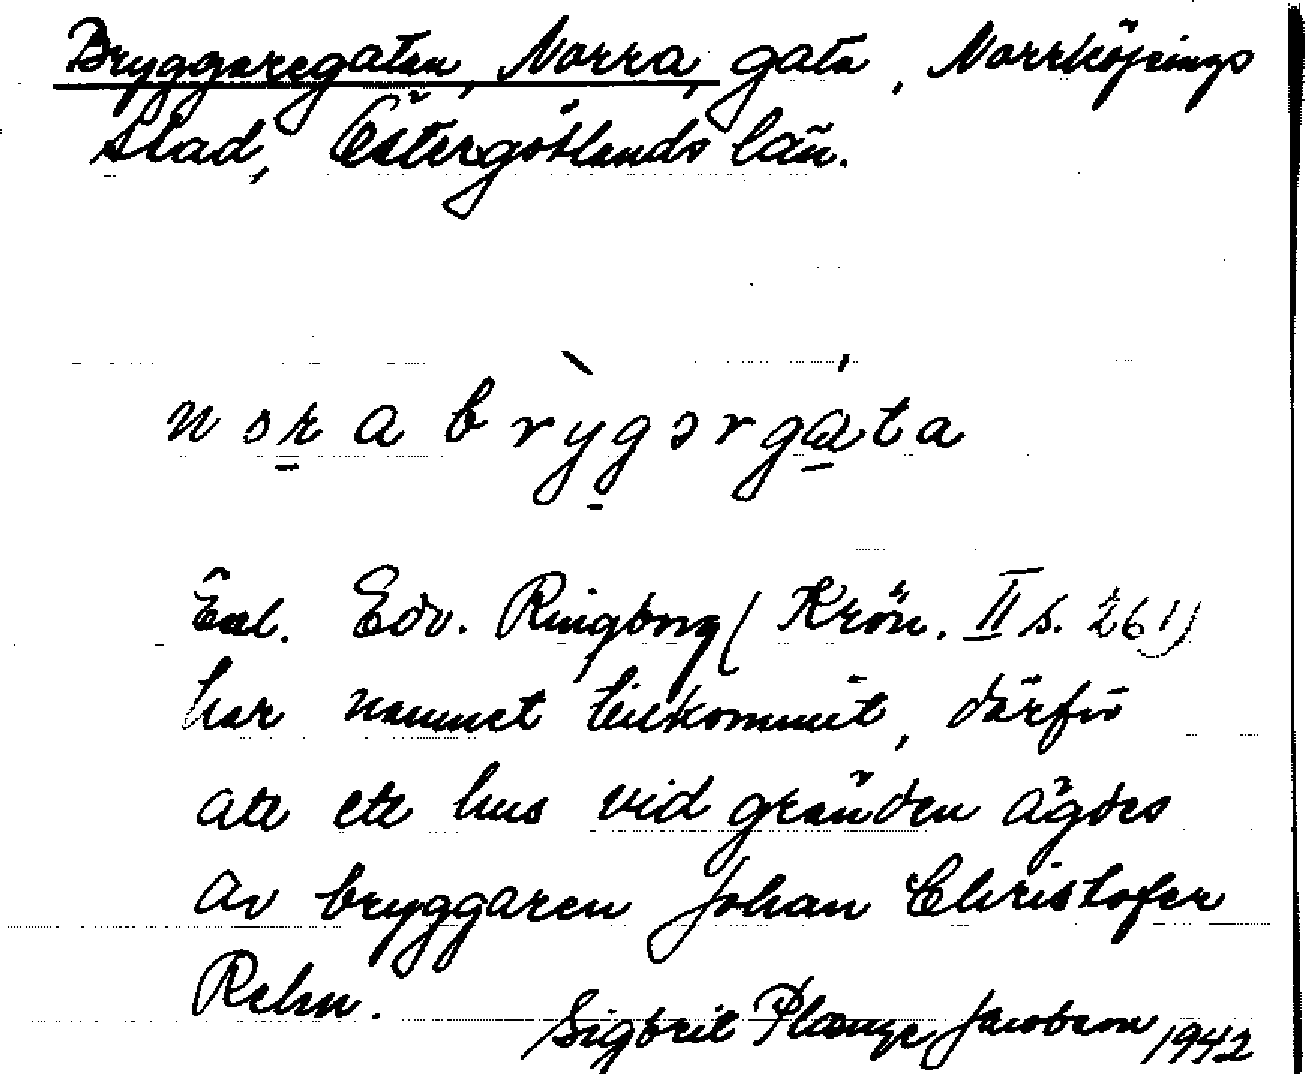 Bryggaregatan, Norra, gata, Norrköpings
stad, Östergötlands län.
nɔra brygərgata
Enl. Edv. Ringborg (Krön. II s. 261)
har namnet tillkommit, därför
att ett hus vid gränden ägdes
av bryggaren Johan Christofer
Rehn.
Sigbrit Plænge Jacobson 1942